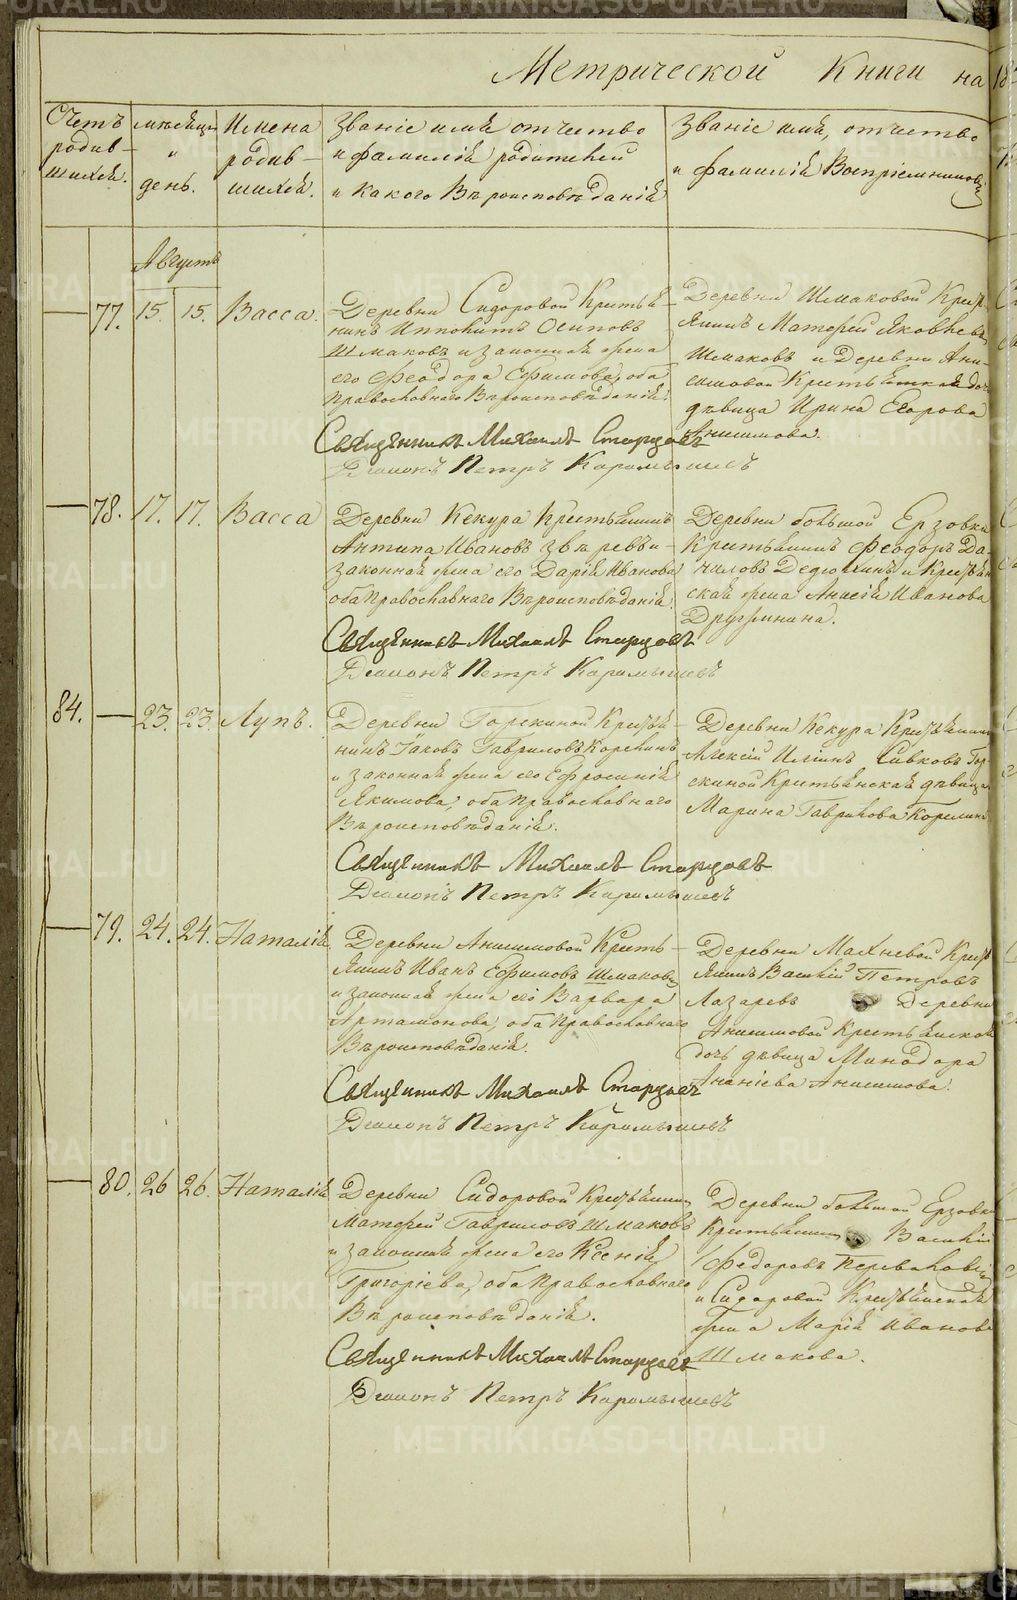 Метрической Книги на 18
Счетъ родив-шихся.
мѣсяцъ и день.
Имена родив-шихся.
Званіе имя отчество
и фамилія родителей
и какого Вѣроисповѣданія
Званіе имя, отчество
и фамилія Воспріемниковъ
Августъ
77. 15. 15. Васса.
Деревни Сидоровой Крестья-
нинъ Ипполитъ Осиповъ
Шмаковъ и законная жена
его Феодора Ефимова, оба
Православнаго Вѣроисповѣданія.
Деревни Шмаковой Кресть-
янинъ Матфей Яковлевъ
Шмаковъ и Деревни Ани-
симовой Крестьянская дочь
дѣвица Ирина Егорова
Анисимова.
Священникъ Михаилъ Старцевъ
Діаконъ Петръ Карамышевъ
78. 17. 17. Васса
Деревни Кекура Крестьянинъ
Антипа Ивановъ Звѣревъ и
законная жена его Дарія Иванова
оба Православнаго Вѣроисповѣданія.
Деревни большой Ерзовки
Крестьянинъ Феодоръ Да-
ниловъ Дедюхинъ и Крестьян
ская жена Анисія Иванова
Дружинина.
Священникъ Михаилъ Старцевъ
Діаконъ Петръ Карамышевъ
84. 23. 23. Лупъ.
Деревни Горскиной Крестья-
нинъ Іаковъ Гавриловъ Корелинъ
и законная жена его Ефросинія
Якимова, оба Православнаго
Вѣроисповѣданія.
Деревни Кекура Крестьянинъ
Алексій Ильинъ Сивковъ Гор-
скиной Крестьянская дѣвица
Марина Гаврилова Корелина
Священникъ Михаилъ Старцевъ
Діаконъ Петръ Карамышевъ
79. 24. 24. Наталія
Деревни Анисимовой Кресть-
янинъ Иванъ Ефимовъ Шмаковъ
и законная жена его Варвара
Артамонова, оба Православнаго
Вѣроисповѣданія.
Деревни Махневой Кресть
янинъ Василій Петровъ
Лазаревъ Деревни
Анисимовой Крестьянская
дочь дѣвица Минодора
Ананіева Анисимова.
Священникъ Михаилъ Старцевъ
Діаконъ Петръ Карамышевъ
80. 26 26. Наталія
Деревни Сидоровой Крестьянинъ
Матфей Гавриловъ Шмаковъ
и законная жена его Ксенія
Григоріева, оба Православнаго
Вѣроисповѣданія.
Деревни большой Ерзовки
Крестьянинъ Василій
Федоровъ
и Сидоровой Крестьянская
жена Марія Иванова
Шмакова.
Священникъ Михаилъ Старцевъ
Діаконъ Петръ Карамышевъ
METRIKI.GASO-URAL.RU